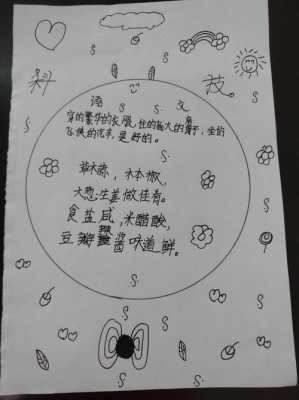 科 技
语 文
穿的繁华的衣服,住的高大的房子,坐的
飞快的汽车,是好的。
草木麻,木本椒,
大葱生姜做佳肴。
食盐咸,米醋酸,
豆瓣酱味道鲜。